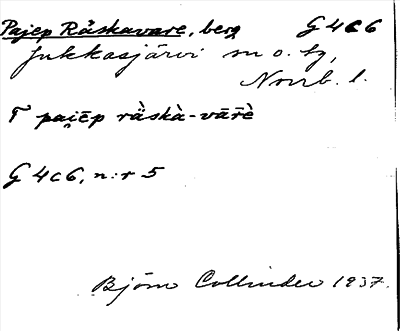 Pajep Råskavare, berg G 4c6
Jukkasjärvi sn o. tg,
Norrb. l.
T pai̯ēp rä̀skà-vārè
G 4c6, n:r 5
Björn Collinder 1937.